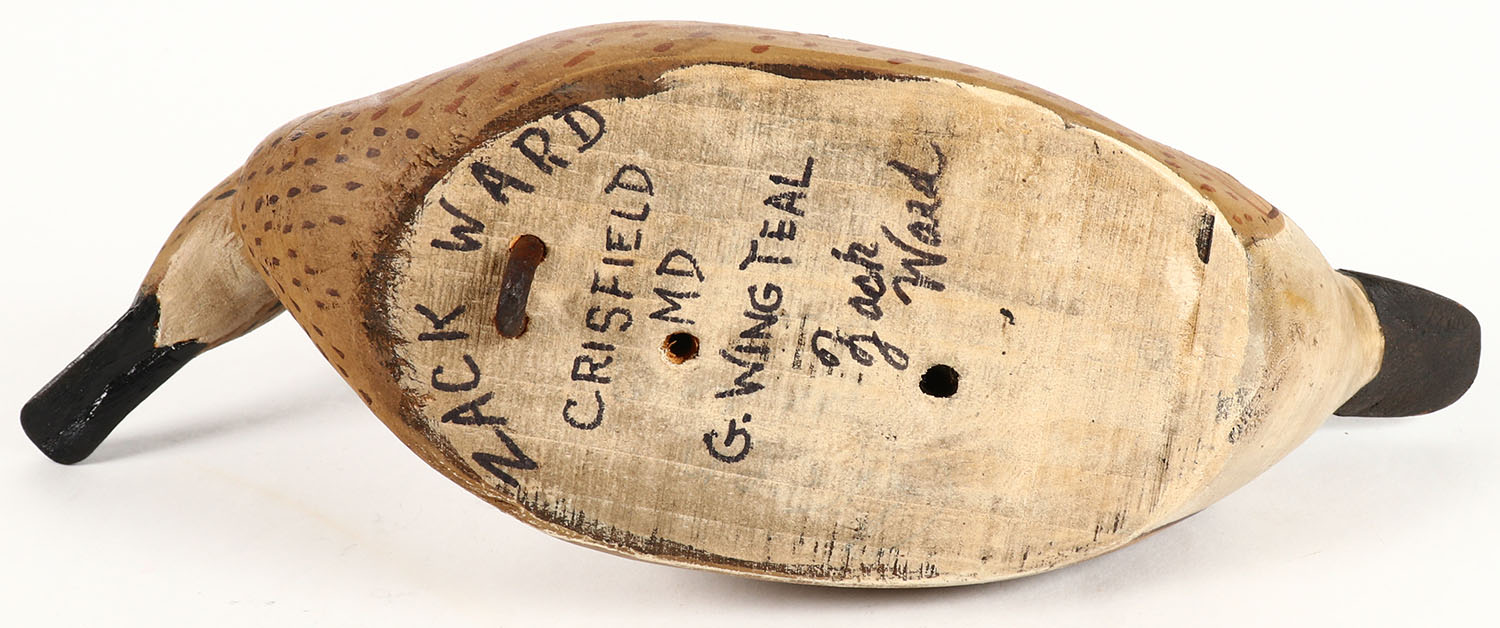 ZACK WARD
CRISFIELD
MD
G. WING TEAL
Zack
Ward